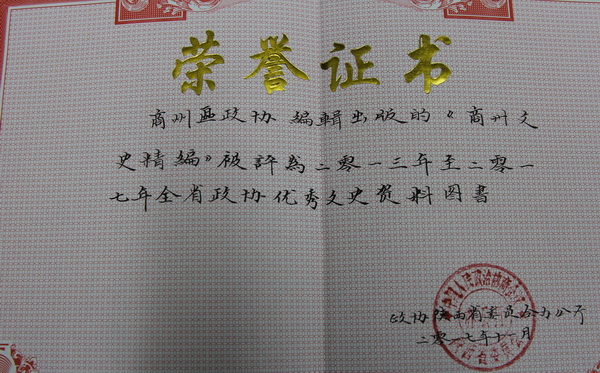 荣誉证书
商州区政协编辑出版的《商州文
史精编》被评为二零一三年至二零一
七年全省政协优秀文史资料图书
政协陕西省委员会办公厅
二零一七年十一月